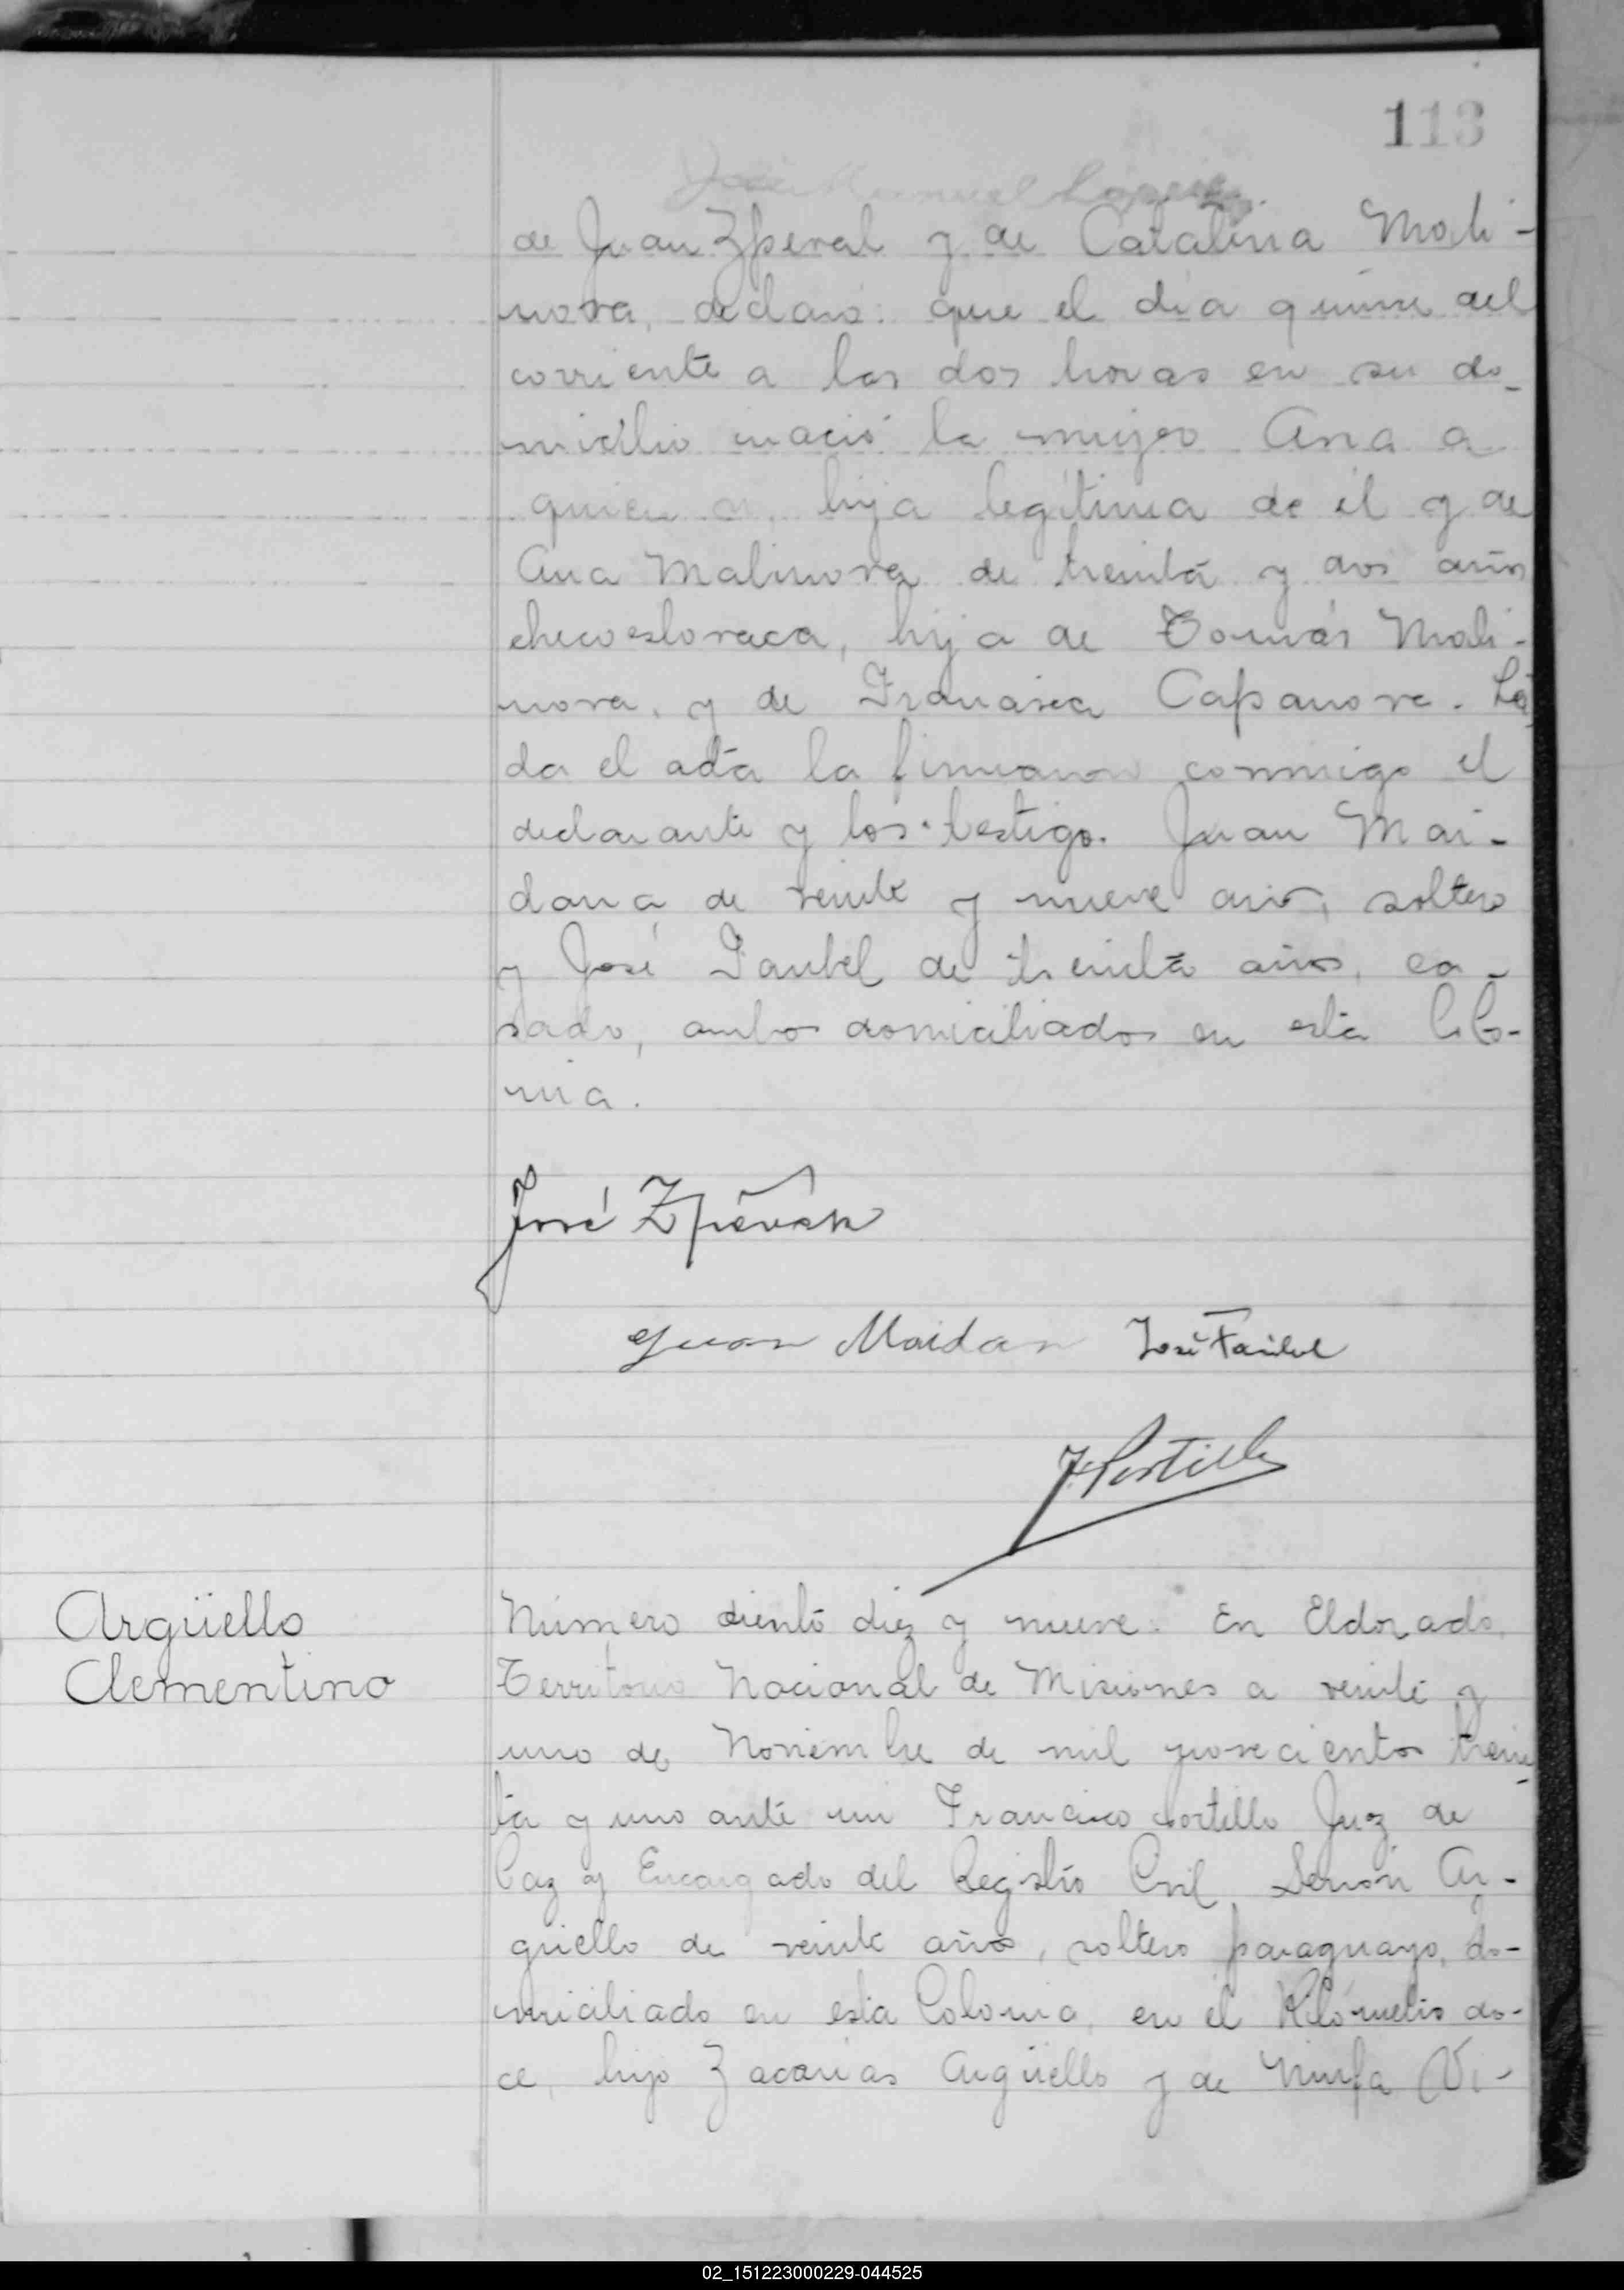 113
José Manuel López
de Juan Zperal y de Catalina Mali-
nova, declaró: que el día quince del
corriente a las dos horas en su do-
micilio nació la mujer Ana a
quien es hija legítima de él y de
Ana Malinova de treinta y dos años
checoeslovaca, hija de Tomás Mali-
nova, y de Francisca Capanova. Leí
da el acta la firmaron conmigo el
declarante y los testigo. Juan Mai-
dana de veinte y nueve años, soltero
y José Faubel de treinta años, ca-
sado, ambos domiciliados en esta Colo-
nia.
José Zpěvák
Juan Maidan José Faubel
F Portillo
Argüello
Clementino
Número ciento diez y nueve. En Eldorado,
Territorio Nacional de Misiones a veinte y
uno de Noviembre de mil novecientos trein
ta y uno ante mi Francisco Portillo Juez de
Paz y Encargado del Registro Civil, Ar-
güello de veinte años, soltero paraguayo, do-
miciliado en esta Colonia, en el Kilómetro do-
ce, hijo Zacarías Argüello y de Ninfa Vi-
02_151223000229-044525